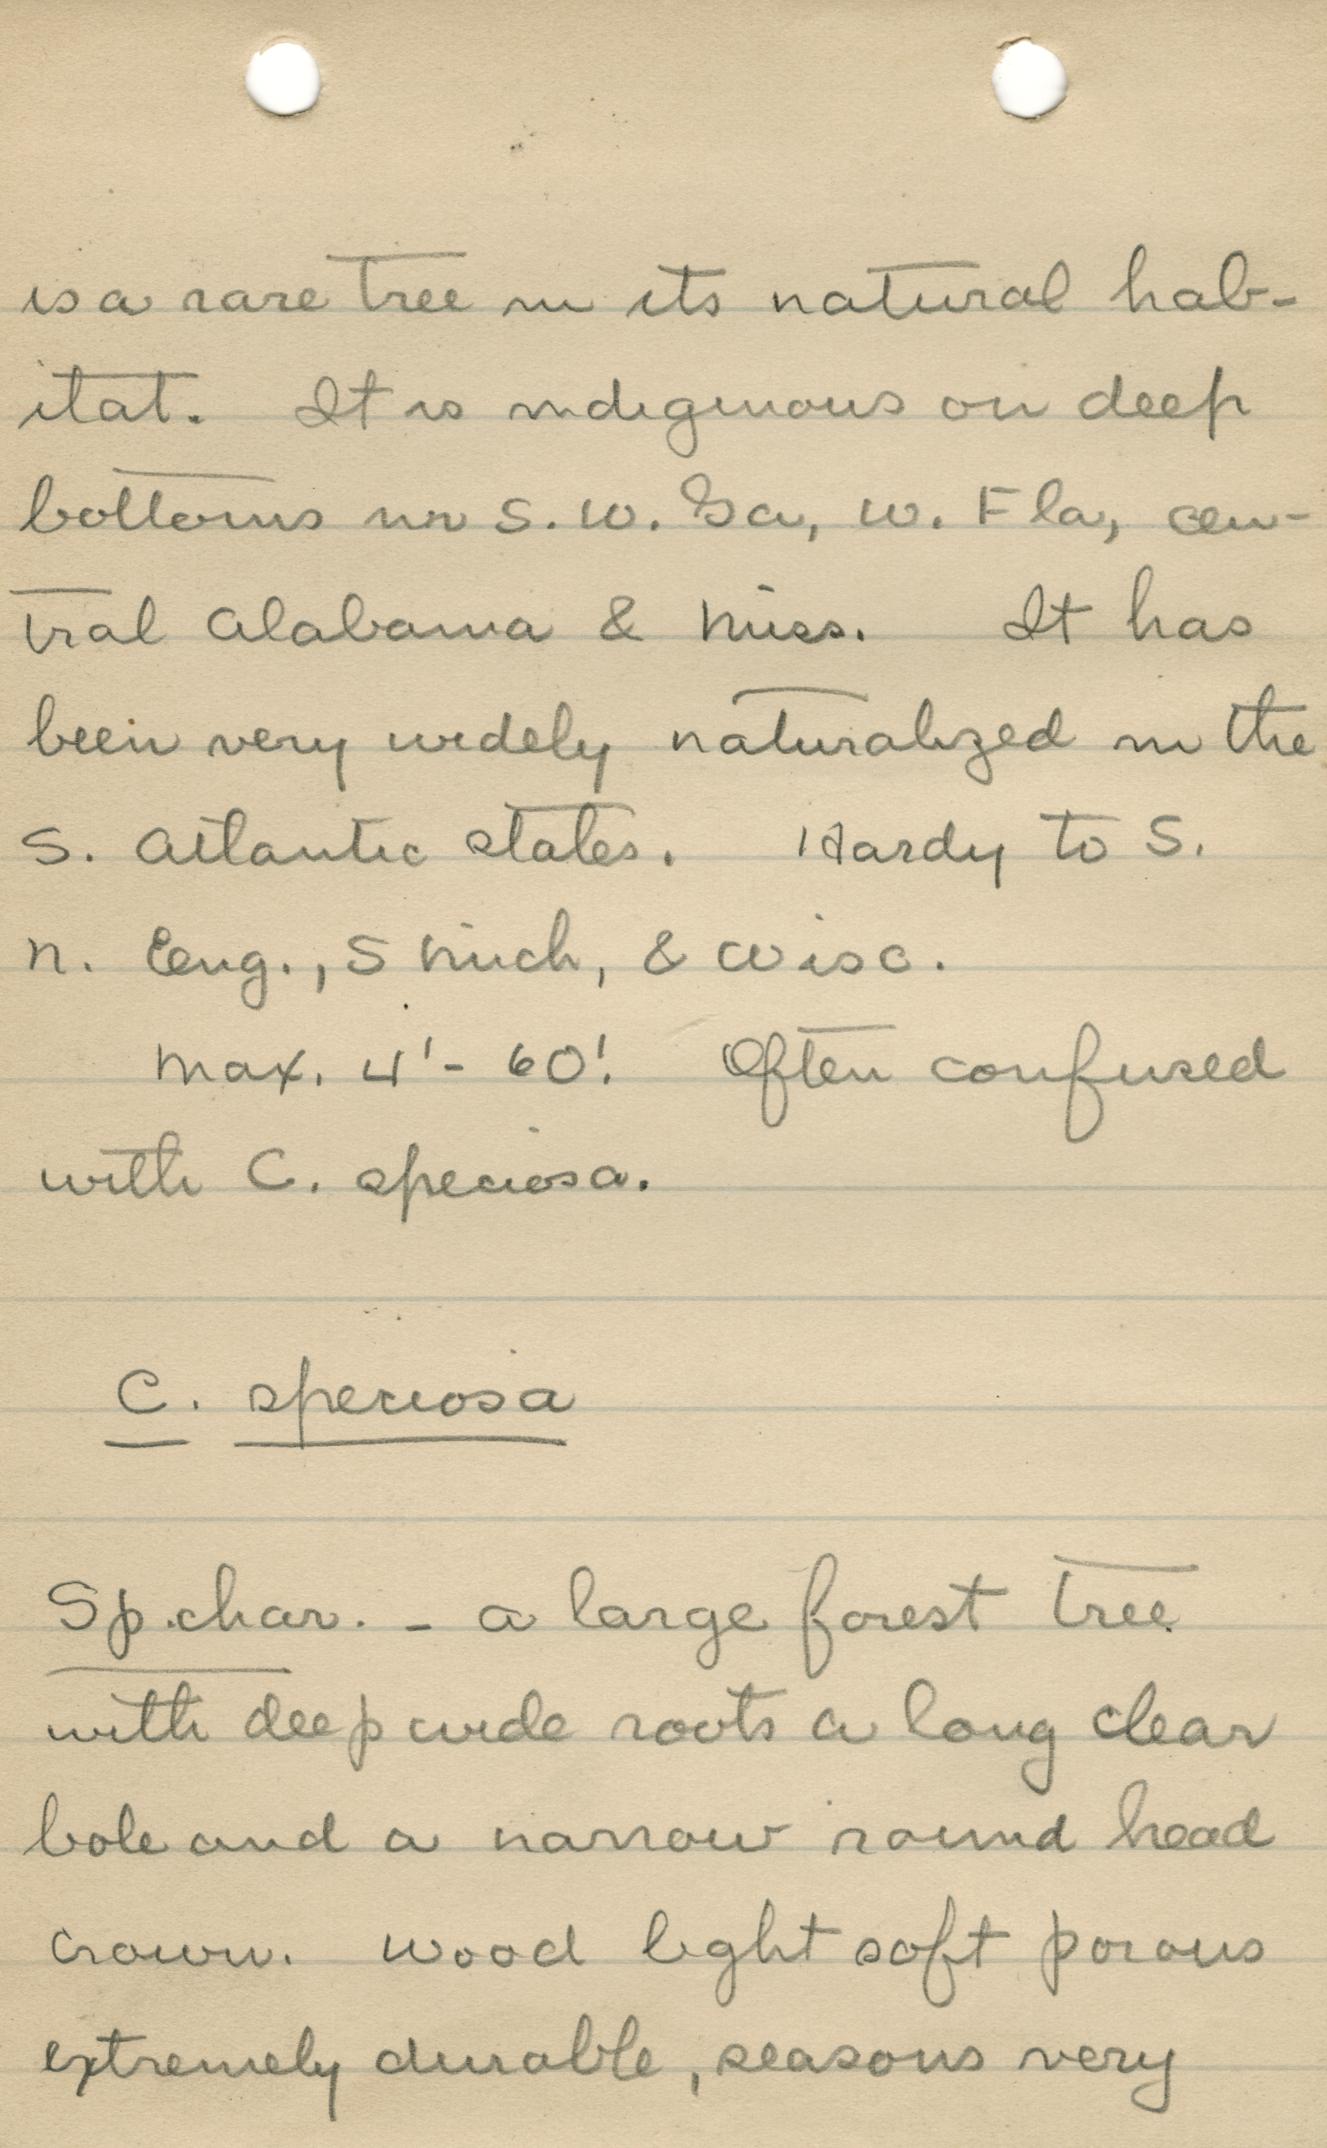 is a rare tree in its natural hab-
itat. It is indigenous on deep
bottoms in S. W. Ga, W. Fla, cen-
tral Alabama & Miss. It has
been very widely naturalized in the
S. Atlantic states. Hardy to S.
N. Eng., S Mich, & Wisc.
Max. 4'- 60'. Often confused
with C. speciosa.
C. speciosa
Sp. char. - a large forest tree
with deep wide roots a long clear
bole and a narrow round head
crown. Wood light soft porous
extremely durable, seasons very